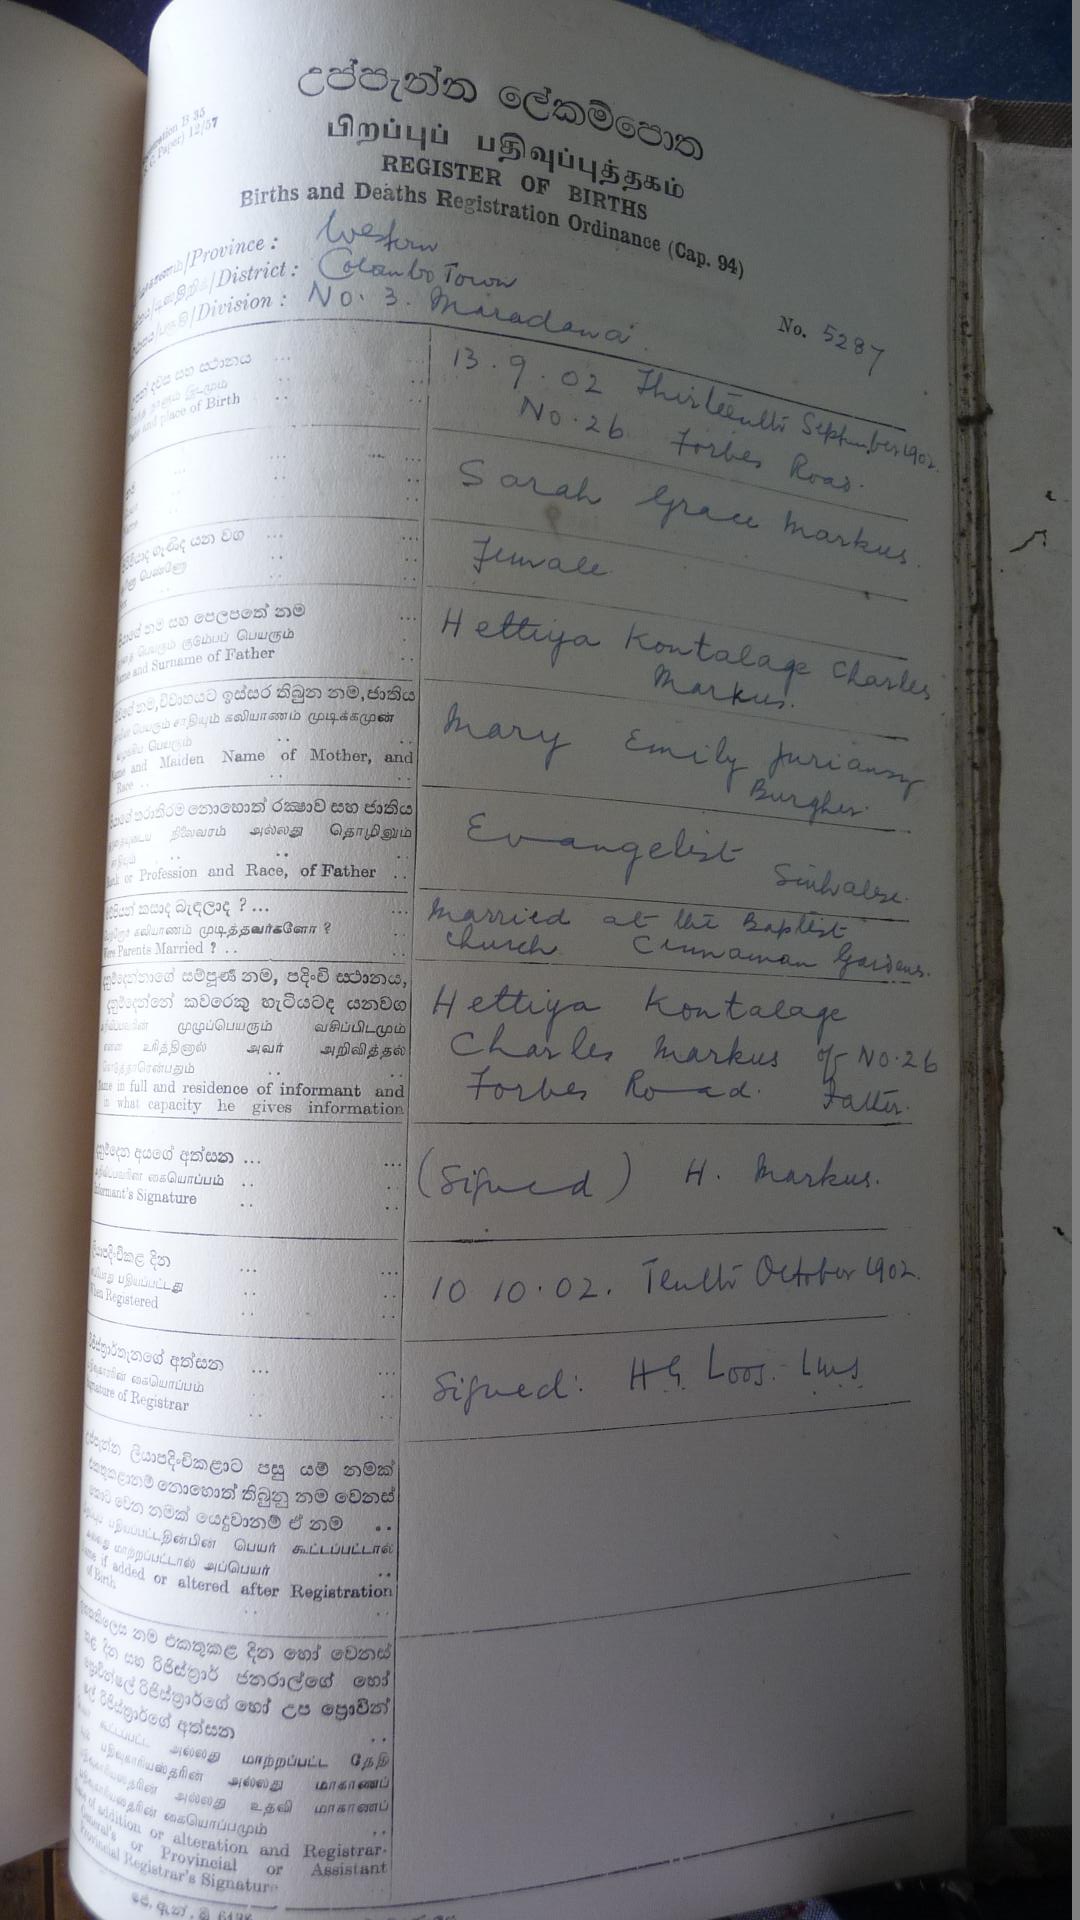 උප්පැන්න ලේකම්පොත
பிறப்புப் பதிவுப்புத்தகம்
REGISTER OF BIRTHS
Births and Deaths Registration Ordinance (Cap. 94)
B 35
12/57
/Province : Western
/District : Colombo Town
/Division : No. 3. Maradana
No. 5287
දවස සහ ස්ථානය
and place of Birth
13. 9. 02 Thirteenth September 1902.
No. 26 Forbes Road.
Name
Sarah Grace Markus.
ගැණිද යන වග
Female
නම සහ පෙලපතේ නම
பெயரும் குடும்பப் பெயரும்
Name and Surname of Father
Hettiya Kontalage Charles
Markus.
නම, විවාහයට ඉස්සර තිබුන නම, ජාතිය
பெயரும் சாதியும் கலியாணம் முடிக்கமுன்
பெயரும்
Name and Maiden Name of Mother, and
Race
Mary Emily Juriansy
Burgher.
තරාතිරම නොහොත් රක්‍ෂාව සහ ජාතිය
நிலைவரம் அல்லது தொழிலும்
Rank or Profession and Race, of Father
Evangelist
Sinhalese.
කසාද බැඳලාද ? ...
கலியாணம் முடித்தவர்களோ ?
Were Parents Married ? ..
Married at the Baptist
Church Cinnaman Gardens.
සම්පූර්ණ නම, පදිංචි ස්ථානය,
කවරෙකු හැටියටද යනවග
முழுப்பெயரும் வசிப்பிடமும்
என்ன உரித்தினால் அவர் அறிவித்தல்
Name in full and residence of informant and
in what capacity he gives information
Hettiya Kontalage
Charles Markus of No. 26
Forbes Road. Father.
අයගේ අත්සන ...
கையொப்பம்
Informant's Signature
(Signed) H. Markus.
ලියාපදිංචිකළ දින
பதியப்பட்டது
When Registered
10 10. 02. Tenth October 1902.
අත්සන
கையொப்பம்
Signature of Registrar
Signed: H G Loos. Lms
උප්පැන්න ලියාපදිංචිකළාට පසු යම් නමක්
එකතුකළානම් නොහොත් තිබුනු නම වෙනස්
කොට වෙන නමක් යෙදුවානම් ඒ නම
பதியப்பட்டதின்பின் பெயர் கூட்டப்பட்டால்
அல்லது மாற்றப்பட்டால் அப்பெயர்
Name if added or altered after Registration
of Birth
නම එකතුකළ දින හෝ වෙනස්
කළ දින සහ රිජිස්ත්‍රාර් ජනරාල්ගේ හෝ
ප්‍රොවින්ෂල් රිජිස්ත්‍රාර්ගේ හෝ උප ප්‍රොවින්
ෂල් රිජිස්ත්‍රාර්ගේ අත්සන
கூட்டப்பட்ட அல்லது மாற்றப்பட்ட தேதி
அல்லது மாகாணப்
அல்லது உதவி மாகாணப்
கையொப்பமும்
of addition or alteration and Registrar-
General's or Provincial or Assistant
Provincial Registrar's Signature